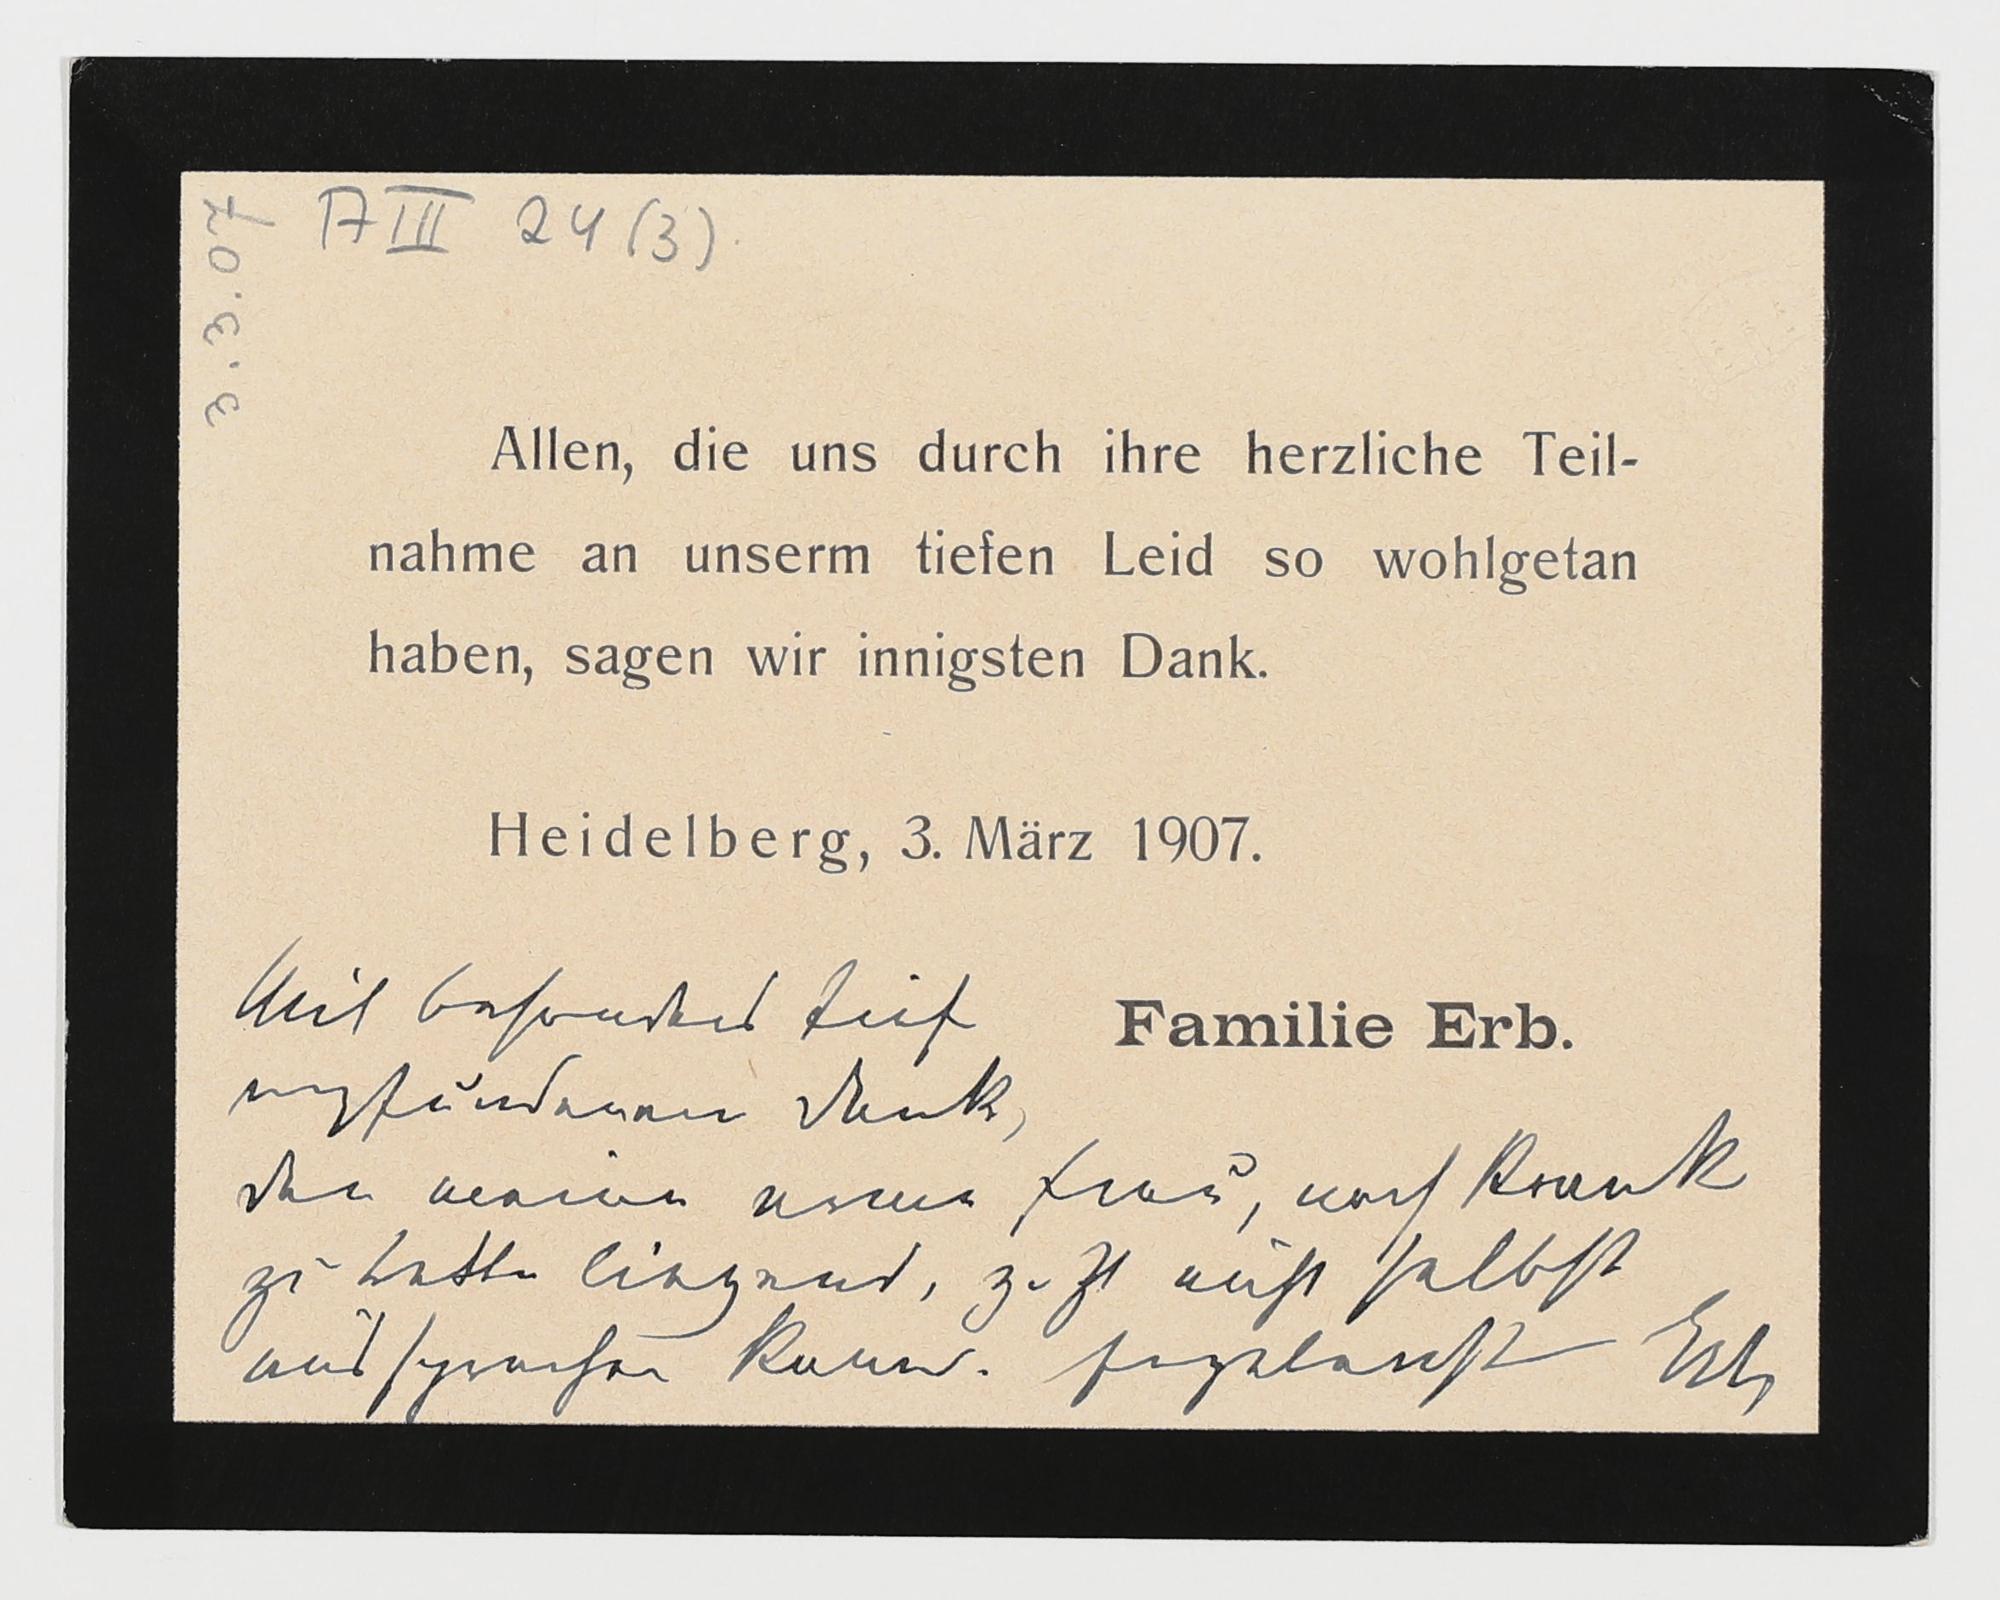 A III 24 (3).
3.3.07
Allen, die uns durch ihre herzliche Teil-
nahme an unserm tiefen Leid so wohlgetan
haben, sagen wir innigsten Dank.
Heidelberg, 3. März 1907.
Familie Erb.
Mit besonders tief
empfundenem Dank,
den meine arme Frau, noch krank
zu Bette liegend, z. Zt nicht selbst
aussprechen kann. Erb